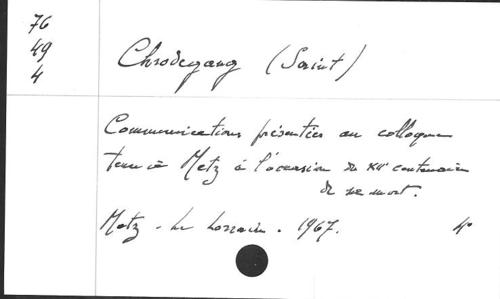 76
49
4
Chrodegang (Saint)
Communications présentées au colloque
tenu à Metz à l'occasion du XIIe centenaire
de sa mort.
Metz - Le Lorrain - 1967. 4°